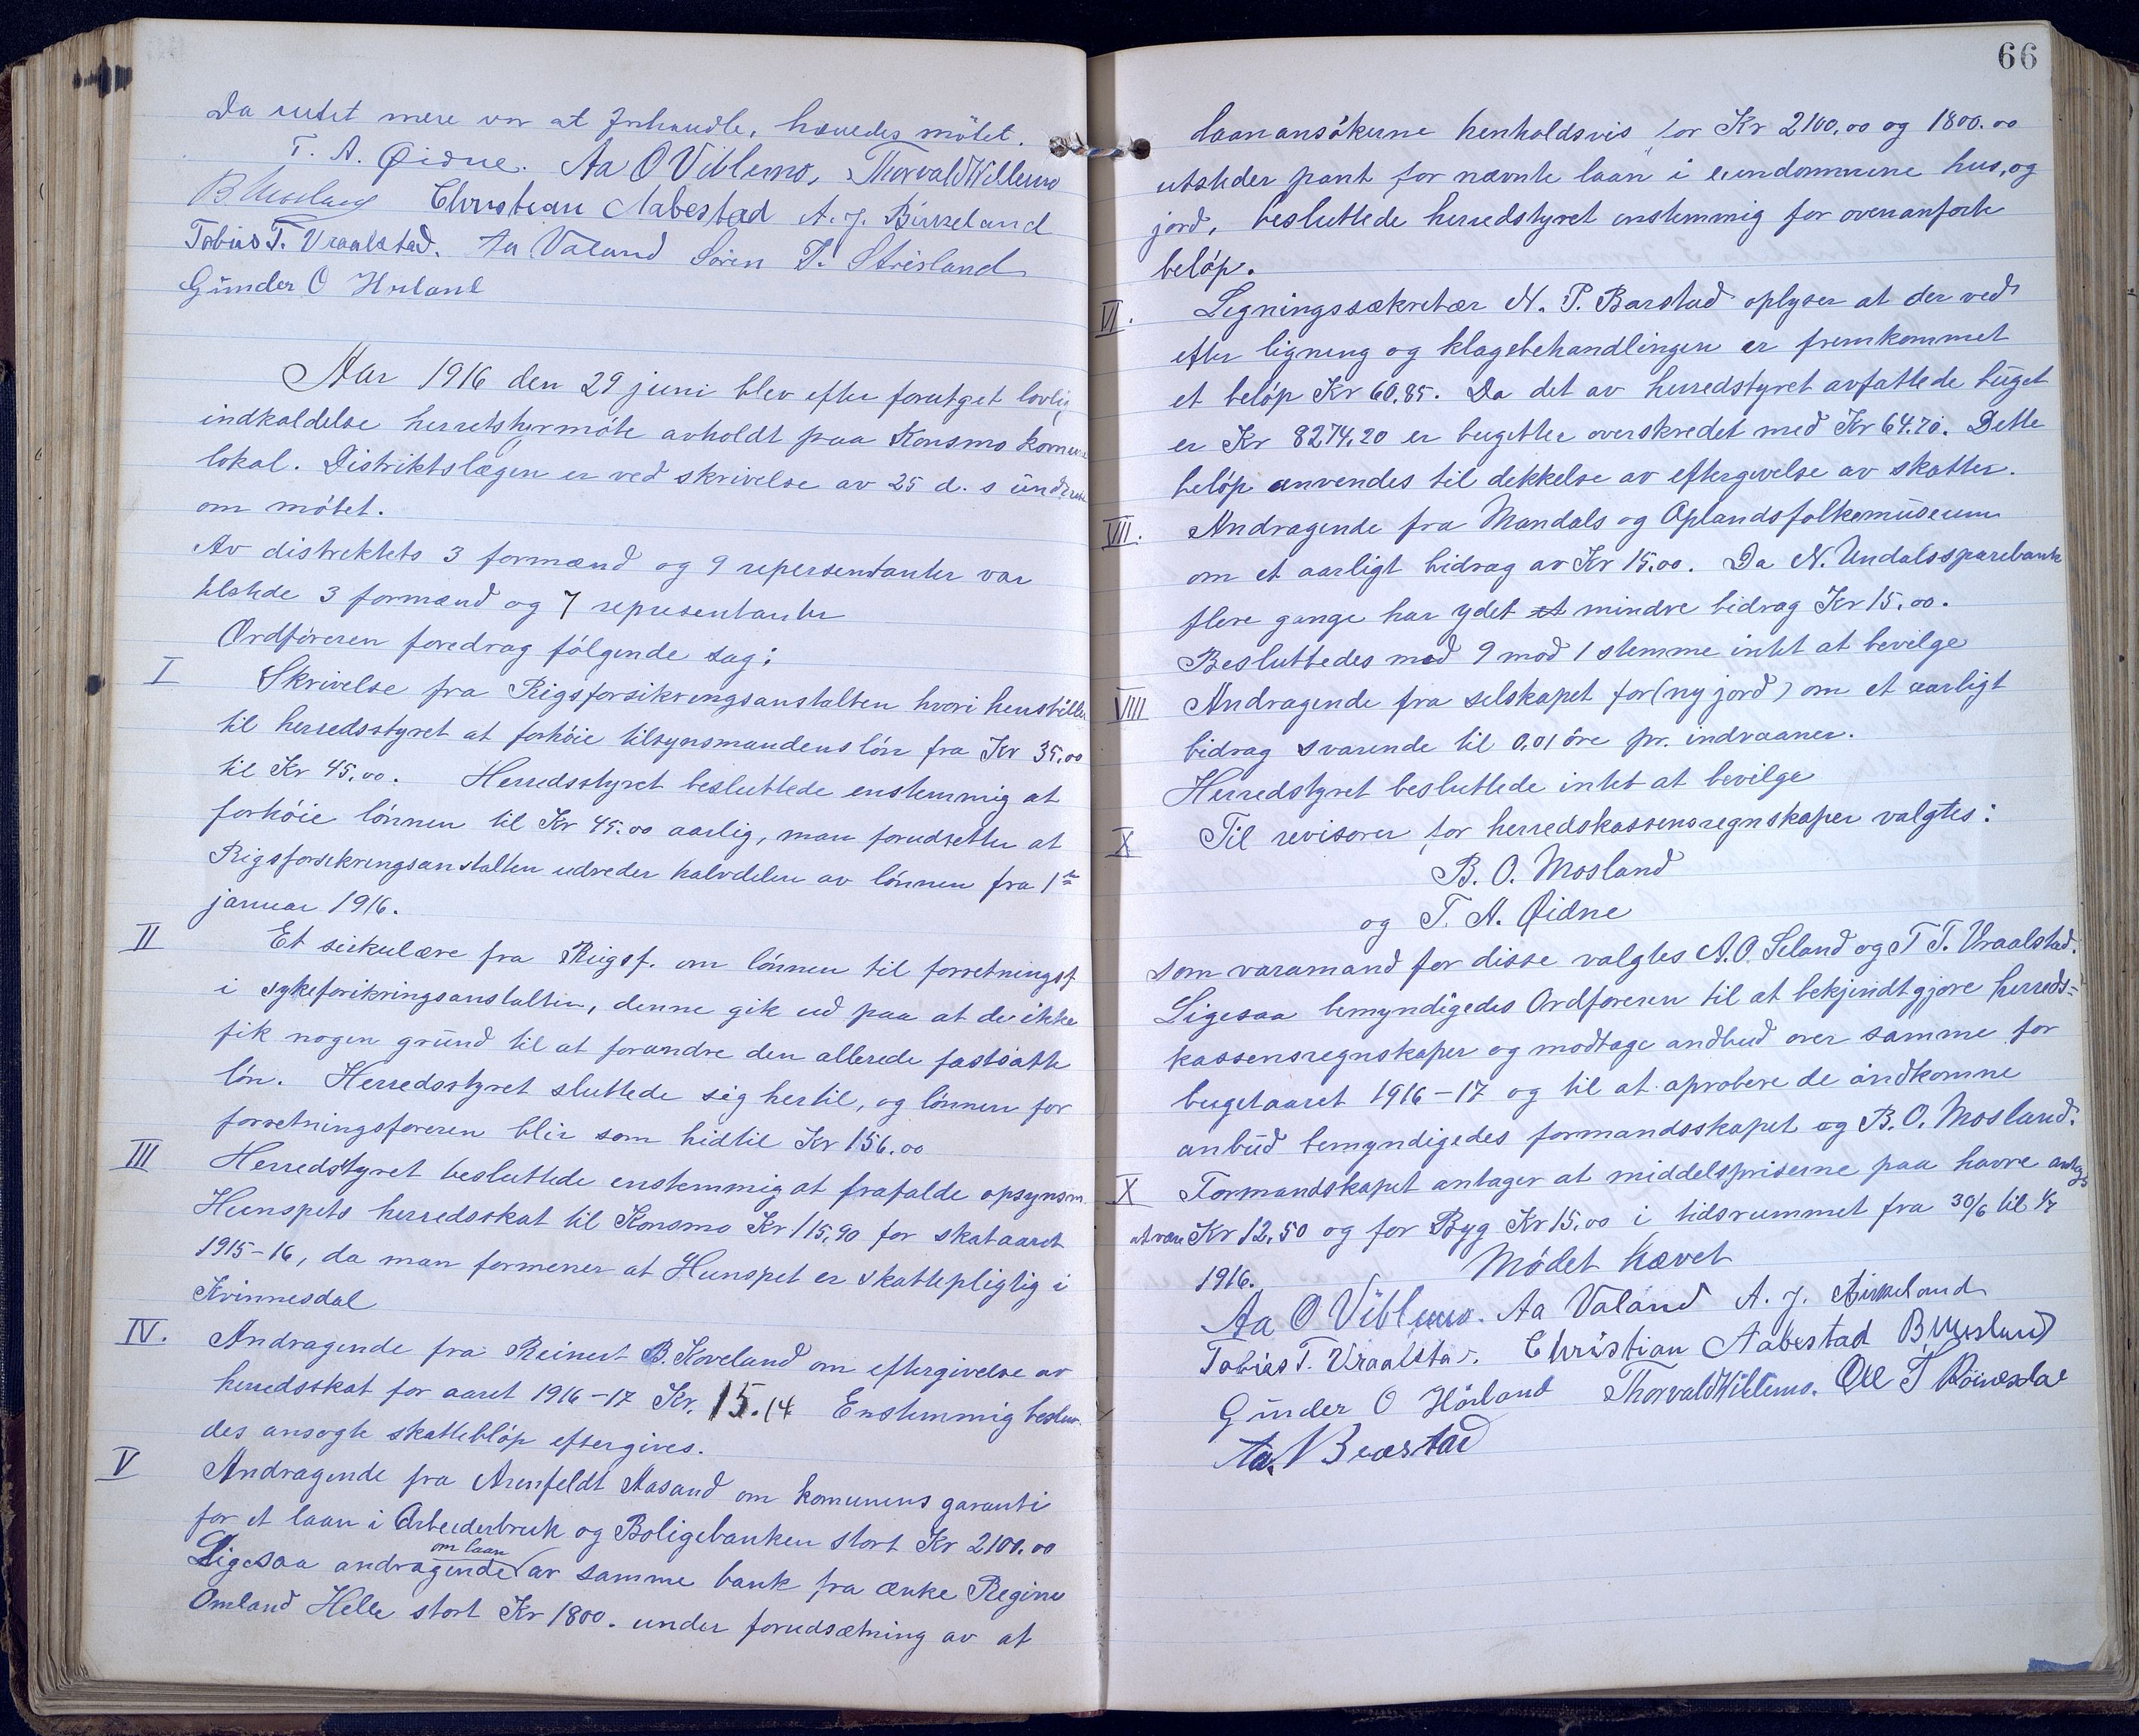 Da intet mere var at forhandle, hævedes mötet.
T. A. Øidne. Aa O Viblemo, Thorvald Viblemo
B Mosland Christian Aabestad A. J. Birkeland
Tobias T. Vraalstad. Aa Valand Sören T. Strisland
Gunder O Hörland
Aar 1916 den 29 juni blev efter forutget lovlig
indkaldelse herredstyrmöte avholdt paa Konsmo komune
lokal. Distriktslægen er ved skrivelse av 25 d. s underrettet
om mötet.
Av distriktets 3 formænd og 9 repersentanter var
tilstede 3 formænd og 7 representanter
Ordföreren foredrag fölgende sag:
I Skrivelse fra Rigsforsikringsanstalten hvori henstilles
til herredsstyret at forhöie tilsynsmandens lön fra Kr 35,00
til Kr 45,00. Herredsstyret besluttede enstemmig at
forhöie lönnen til Kr 45.00 aarlig, man forudsetter at
Rigsforsikringsanstalten udreder halvdelen av lönnen fra 1ste
januar 1916.
II Et sirkulære fra Rigsf. om lönnen til forretningsf.
i sykeforikringsanstalten, denne gik ud paa at de ikke
fik nogen grund til at forandre den allerede fastsatte
lön. Herredsstyret sluttede sig hertil, og lönnen for
forretningsföreren blir som hidtil Kr 156.00
III Herredstyret besluttede enstemmig at frafalde opsynsm.
Hunspets herredsskat til Konsmo Kr 115,90 for skataaret
1915-16, da man formener at Hunspet er skattepligtig i
Kvinnesdal
IV. Andragende fra Reinert B. Koveland om eftergivelse av
herredsskat for aaret 1916-17 Kr. 15.14 Enstemmig beslut-
des ansogte skattebløp eftergives.
V Andragende fra Arenfeldt Aasand om komunens garanti
for et laan i Arbeiderbruk og Boligebanken stort Kr 2100.00
Ligesaa andragende om laan av samme bank fra enke Regine
Omland Helle stort Kr 1800. under forudsætning av at
66
laanansökerne henholdsvis for Kr 2100,00 og 1800.00
utsteder pant for nævnte laan i eiendommene hus, og
jord, besluttede herredstyret enstemmig for ovenanförte
belöp.
VI. Ligningssækretær N. P. Barstad oplyser at der ved
efter ligning og klagebehandlingen er fremkommet
et belöp Kr 60.85. Da det av herredstyret avfattede buget
er Kr 8274,20 er bugettee overskredet med Kr 64.70. Dette
belöp anvendes til dekkelse av eftergivelse av skatter.
VII. Andragende fra Mandals og Oplandsfolkemuseum
om et aarligt bidrag av Kr 15,00. Da N. Undalssparebank
flere gange har ydet et mindre bidrag Kr 15,00.
Besluttedes med 9 mod 1 stemme intet at bevilge
VIII Andragende fra selskapet for (ny jord) om et aarligt
bidrag svarende til 0,01 öre pr. indvaaner.
Herredstyret besluttede intet at bevilge
X Til revisorer for herredskassensregnskaper valgtes:
B. O. Mosland
og T. A. Øidne
som varamand for disse valgtes A. O. Seland og T T. Vraalstad.
Ligesaa bemyndigedes Ordföreren til at bekjendtgjöre herreds-
kassensregnskaper og modtage andbud over samme for
bugetaaret 1916-17 og til at aprobere de indkomne
anbud bemyndigedes formandsskapet og B. O. Mosland.
X Formandskapet antager at middelspriserne paa havre antages
at være Kr 12,50 og for Byg Kr 15,00 i tidsrummet fra 30/6 til 1/7
1916. Mödet hævet
Aa O Viblemo. Aa Valand A. J. Birkeland
Tobias T. Vraalstad. Christian Aabestad B Mosland
Gunder O Hörland Thorvald Viblemo. Ole T Röinesdal
Aa.